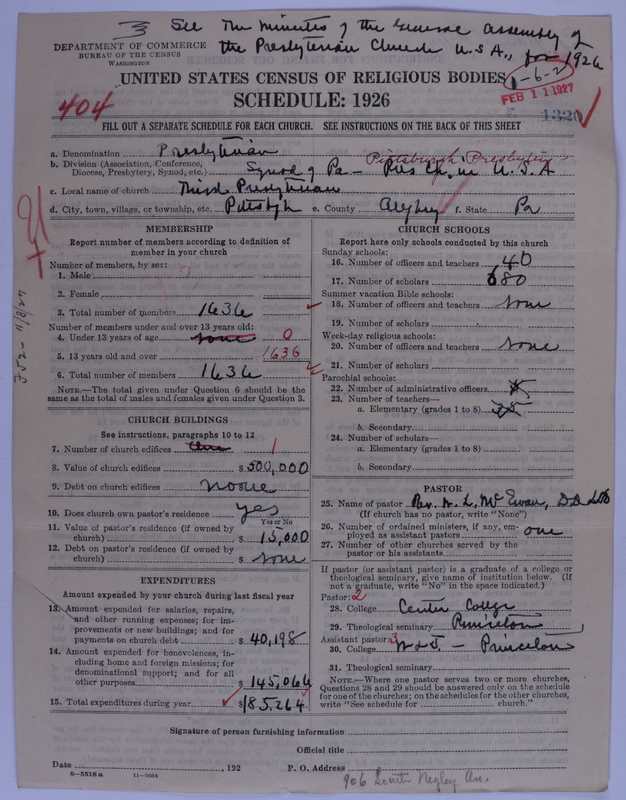 3 See The Minutes of the General Assembly of
the Presbyterian Church U.S.A., for 1926
DEPARTMENT OF COMMERCE
BUREAU OF THE CENSUS
WASHINGTON
1-6-2
UNITED STATES CENSUS OF RELIGIOUS BODIES
FEB 11 1927
404
SCHEDULE: 1926
1320
FILL OUT A SEPARATE SCHEDULE FOR EACH CHURCH. SEE INSTRUCTIONS ON THE BACK OF THIS SHEET
a. Denomination Presbyterian
b. Division (Association, Conference, Diocese, Presbytery, Synod, etc.) Synod of Pa - Pres Ch. in U.S.A
Pittsburgh Presbytery
c. Local name of church Third Presbyterian
d. City, town, village, or township, etc. Pittsbgh e. County Allegheny f. State Pa
MEMBERSHIP
Report number of members according to definition of
member in your church
Number of members, by sex:
1. Male
2. Female
3. Total number of members 1636
Number of members under and over 13 years old:
4. Under 13 years of age none 0
5. 13 years old and over 1636
6. Total number of members 1636
NOTE.—The total given under Question 6 should be the
same as the total of males and females given under Question 3.
CHURCH BUILDINGS
See instructions, paragraphs 10 to 12
7. Number of church edifices One 1
8. Value of church edifices $500,000
9. Debt on church edifices none
10. Does church own pastor's residence yes
Yes or No
11. Value of pastor's residence (if owned by
church) $ 15,000
12. Debt on pastor's residence (if owned by
church) $ none
EXPENDITURES
Amount expended by your church during last fiscal year
13. Amount expended for salaries, repairs,
and other running expenses; for im-
provements or new buildings; and for
payments on church debt $ 40,198
14. Amount expended for benevolences, in-
cluding home and foreign missions; for
denominational support; and for all
other purposes $ 145,066
15. Total expenditures during year $185,264
CHURCH SCHOOLS
Report here only schools conducted by this church
Sunday schools:
16. Number of officers and teachers 40
17. Number of scholars 680
Summer vacation Bible schools:
18. Number of officers and teachers none
19. Number of scholars
Week-day religious schools:
20. Number of officers and teachers none
21. Number of scholars
Parochial schools:
22. Number of administrative officers
23. Number of teachers—
a. Elementary (grades 1 to 8)
b. Secondary
24. Number of scholars—
a. Elementary (grades 1 to 8)
b. Secondary
PASTOR
25. Name of pastor Rev. W. L. McEwan, D.D.
(If church has no pastor, write "None")
26. Number of ordained ministers, if any, em-
ployed as assistant pastors one
27. Number of other churches served by the
pastor or his assistants
If pastor (or assistant pastor) is a graduate of a college or
theological seminary, give name of institution below. (If
not a graduate, write "No" in the space indicated.)
Pastor: 2
28. College Center College
29. Theological seminary Princeton
Assistant pastor: 3
30. College W & J. - Princeton
31. Theological seminary
NOTE.—Where one pastor serves two or more churches,
Questions 28 and 29 should be answered only on the schedule
for one of the churches; on the schedules for the other churches,
write "See schedule for church."
Signature of person furnishing information
Official title
Date , 192 P. O. Address
8-5518 a 11-9064
906 South Negley Av.